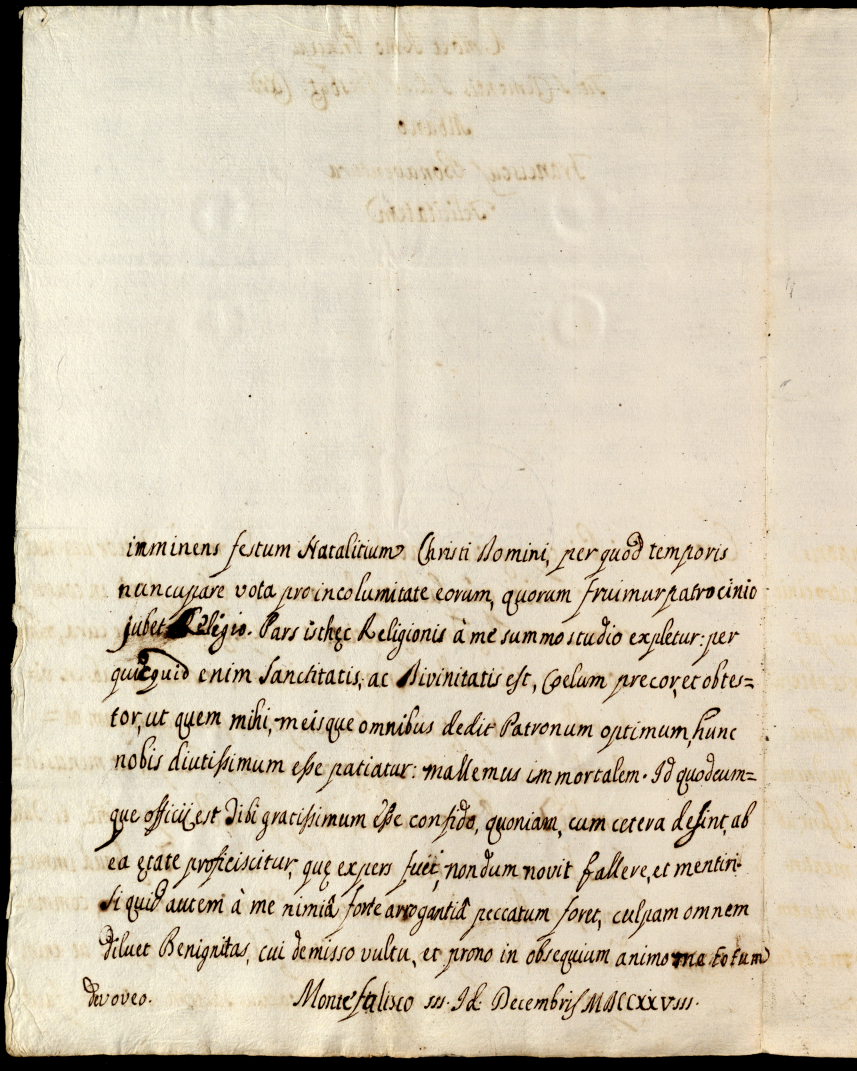 imminens festum Natalitium Christi Domini, per quod temporis
nuncupare vota pro incolumitate eorum, quorum fruimur patrocinio
jubet Religio. Pars isthęc Religionis à me summo studio expletur: per
quicquid enim Sanctitatis, ac Divinitatis est, Coelum precor, et obtes=
tor, ut quem mihi, meisque omnibus dedit Patronum optimum, hunc
nobis diutissimum esse patiatur: mallemus immortalem. Id quodcum=
que officij est Tibi gratissimum esse confido, quoniam, cum cetera desint, ab
ea ętate proficiscitur, quę expers fuci, nondum novit fallere, et mentiri.
Si quid autem à me nimiâ forte arrogantiâ peccatum foret, culpam omnem
diluet Benignitas, cui demisso vultu, et prono in obsequium animo me totum
devoveo. Montefalisco III. Id. Decembris MDCCXXVIII.